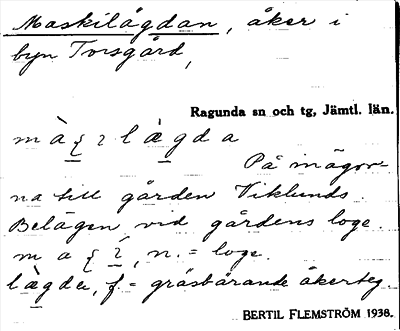 Maskilägdan, åker i
byn Torsgård,
Ragunda sn och tg, Jämtl. län.
På ägor-
na till gården Viklunds.
Belägen vid gårdens loge.
n. = loge.
f. = gräsbärande åkerteg.
BERTIL FLEMSTRÖM 1938.